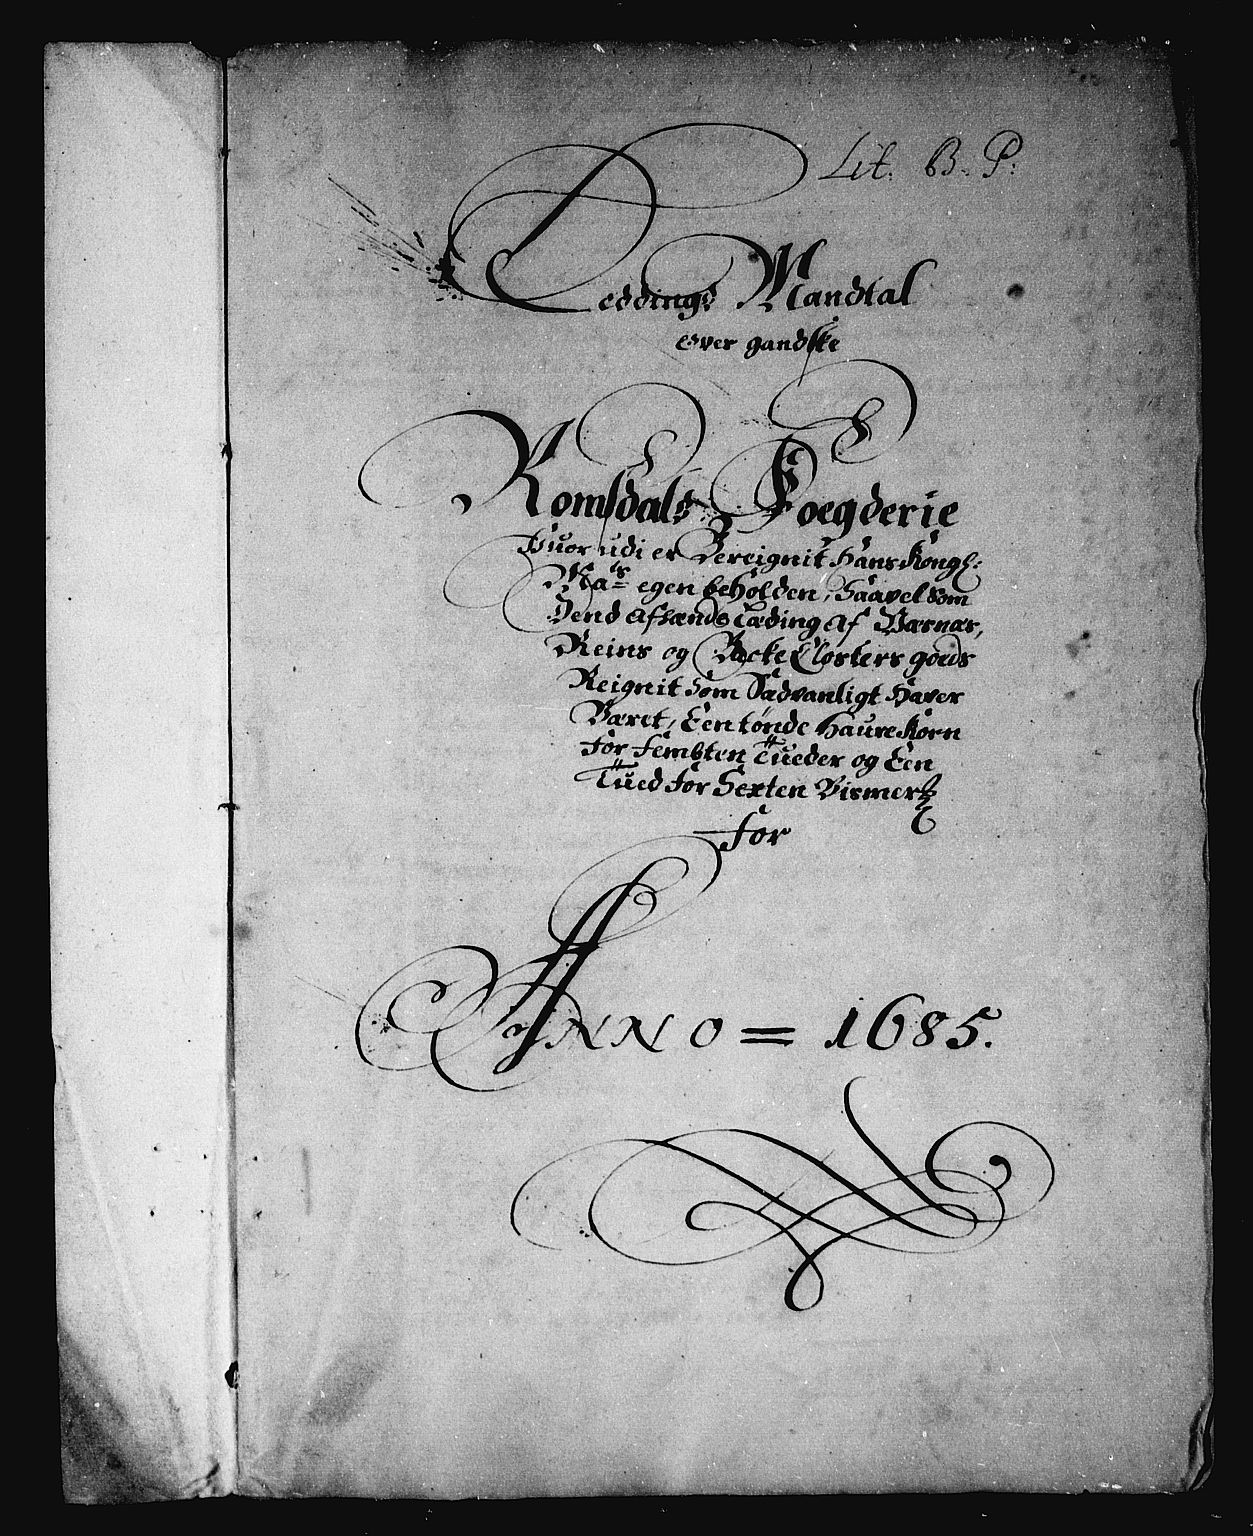 Lit. B. P:
Leddings Mandtal
over gandske
Romsdals Foegderie
Huor udi er Bereignit Hans Kongl:
Ma:ts egen beholden, Saavel Som
Dend afstands Læding af Værnæs,
Reins og Backe Closters goeds
Reignit Som Sædvanligt Haver
Været, Een tønde Haure Korn
For fembten Tueder og Een
Tued for Sexten Bismer
for
ANNO = 1685.